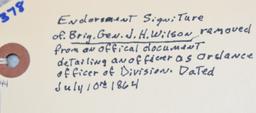 378
Endorsement Signiture
of. Brig. Gen. J. H. Wilson removed
from an offical document
detailing an officer as Ordance
officer of Division. Dated
July 10th 1864